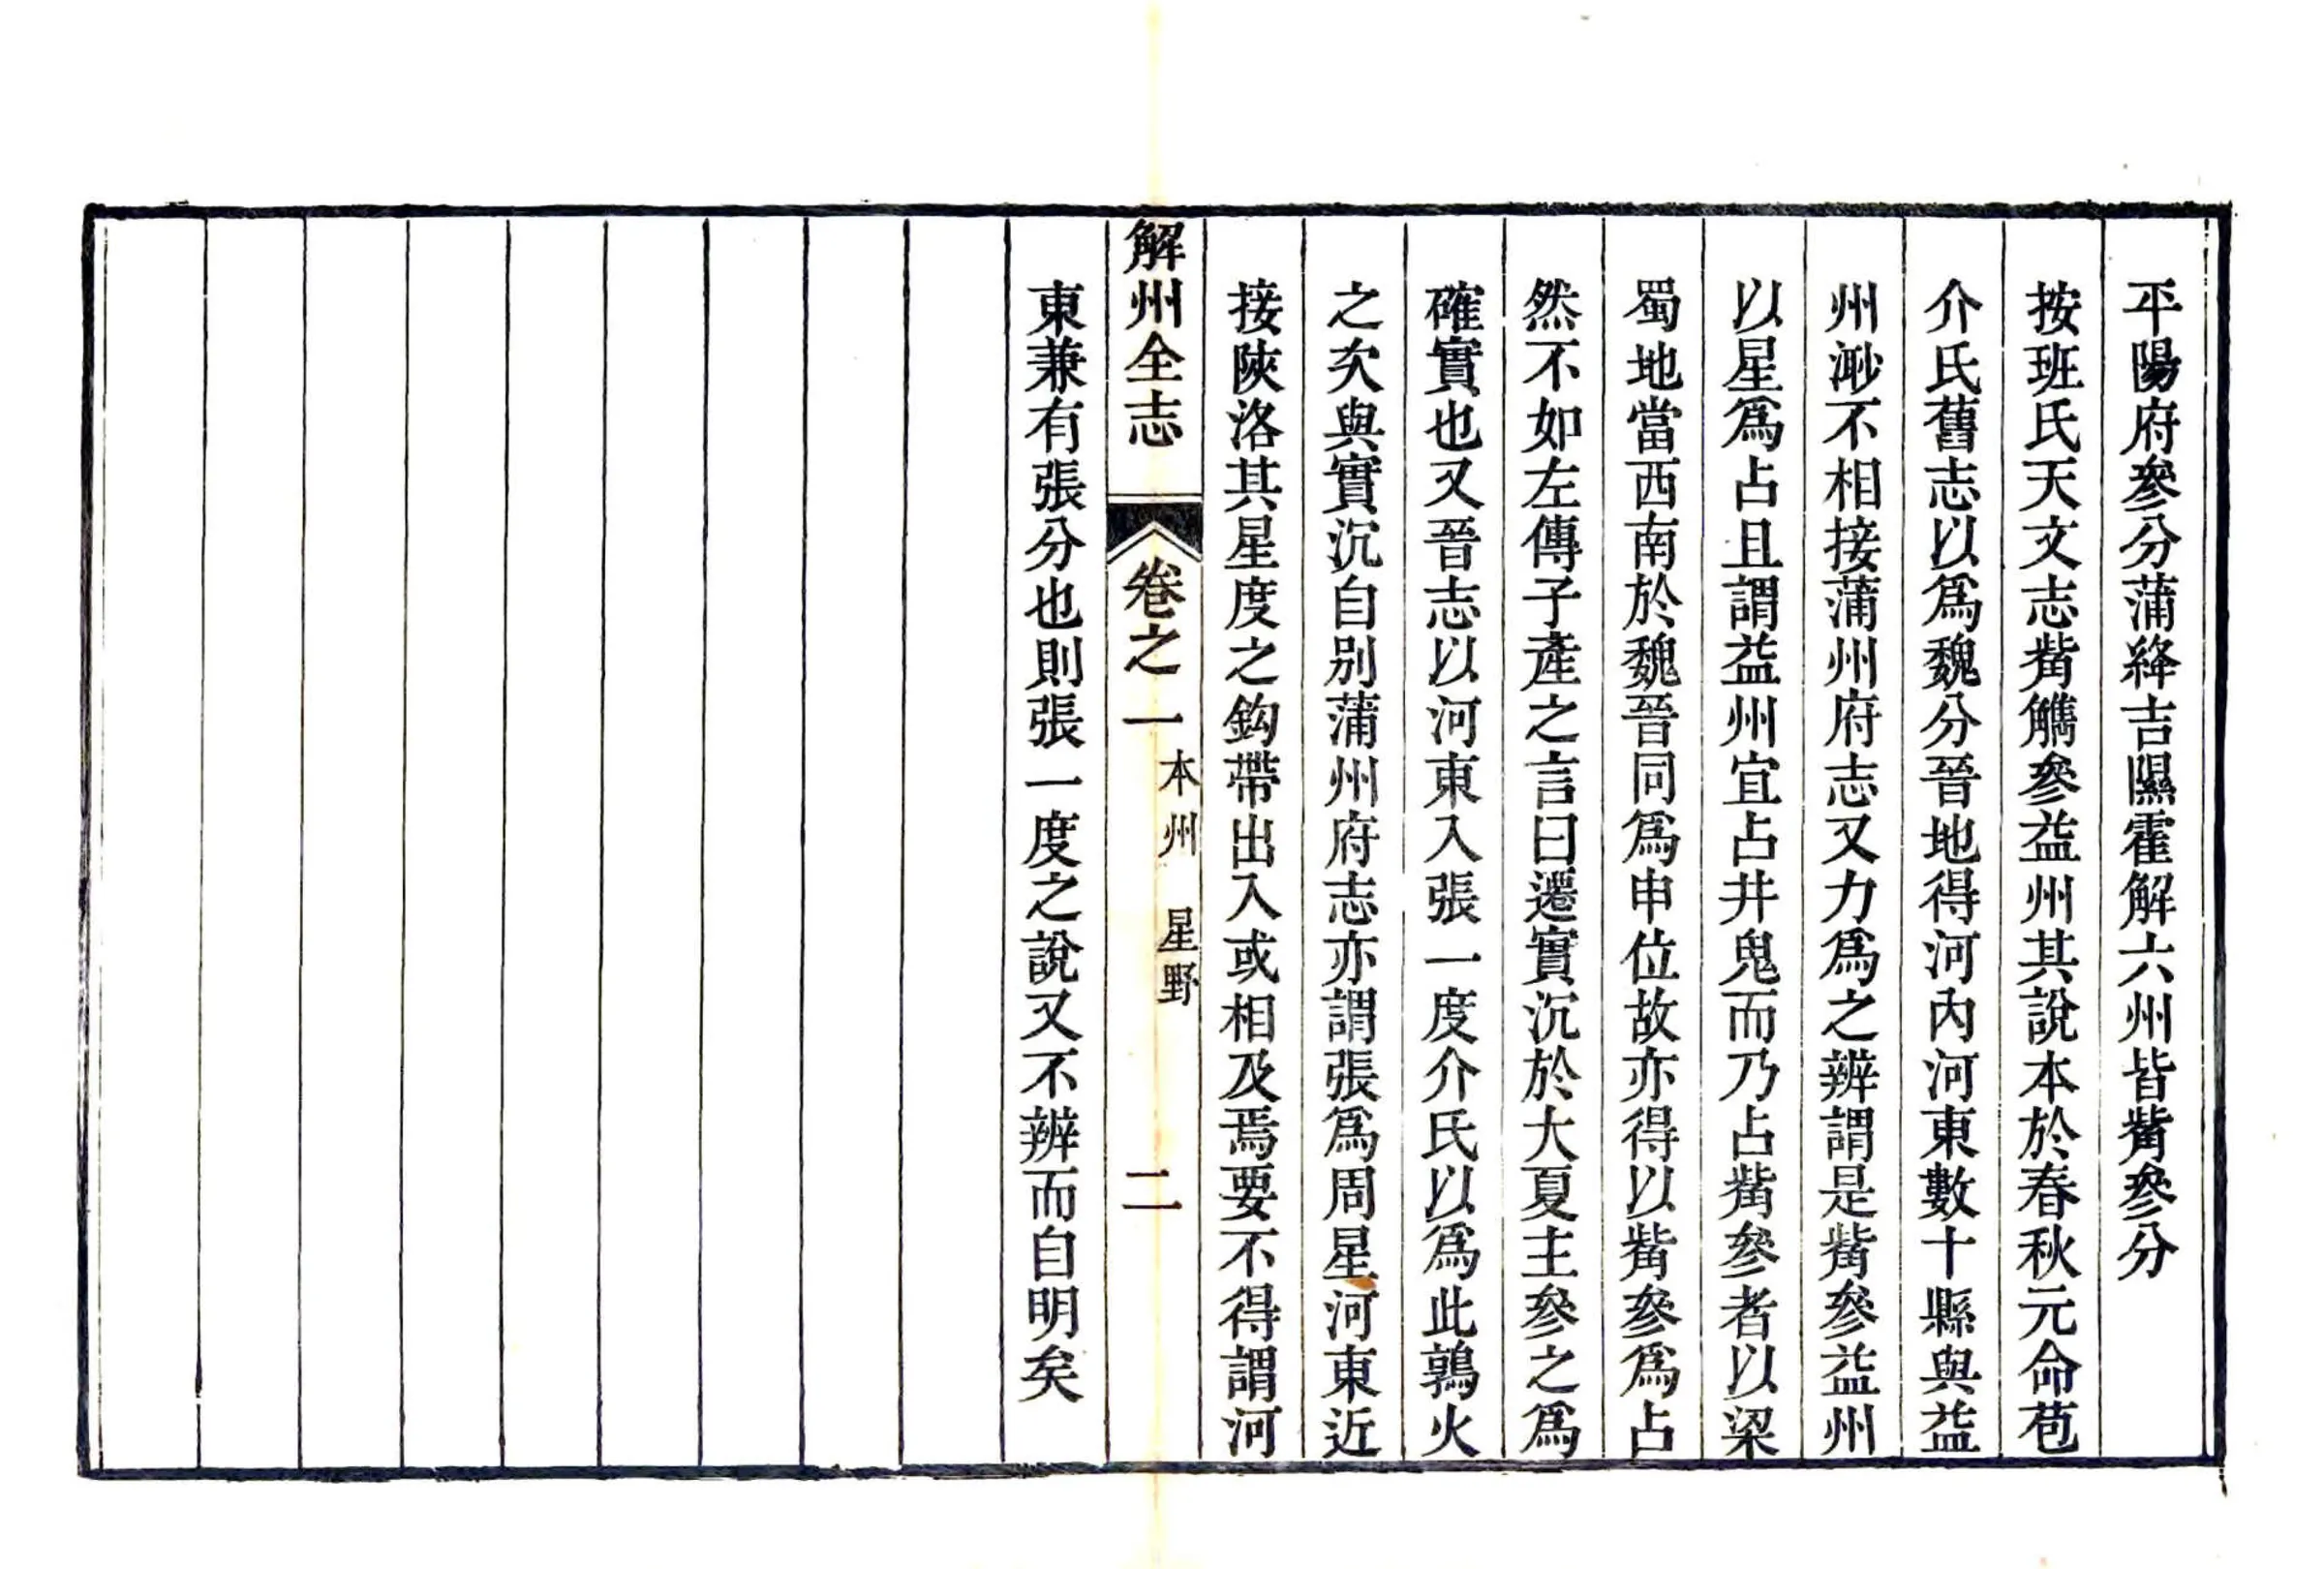 平陽府參分蒲絳吉隰霍解六州皆觜參分
按班氏天文志觜觿參益州其說本於春秋元命苞
介氏舊志以爲魏分晉地得河內河東數十縣與益
州渺不相接蒲州府志又力爲之辨謂是觜參益州
以星爲占且謂益州宜占井鬼而乃占觜參者以梁
蜀地當西南於魏晉同爲申位故亦得以觜參爲占
然不如左傳子產之言曰遷實沉於大夏主參之爲
確實也又晉志以河東入張一度介氏以爲此鶉火
之次與實沉自別蒲州府志亦謂張爲周星河東近
接陜洛其星度之鈎帶出入或相及焉要不得謂河
解州全志
卷之一
本州 星野
二
東兼有張分也則張一度之說又不辨而自明矣